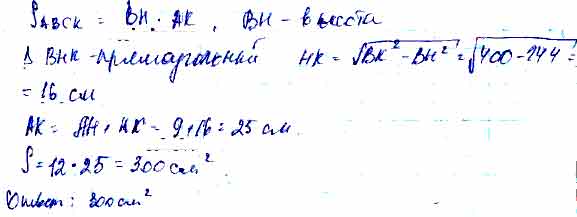 S ABCK = BH · AK, BH - высота
Δ BHK - прямоугольный HK = √BK² - BH² = √400 - 144 =
= 16 см
AK = AH + HK = 9 + 16 = 25 см.
S = 12 · 25 = 300 см²
Ответ: 300 см²